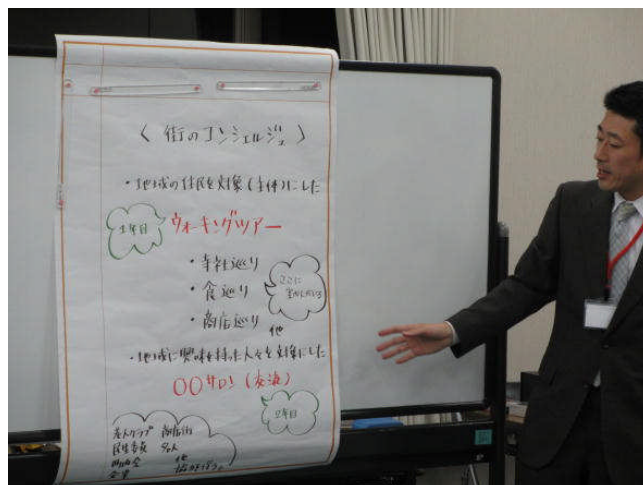 〈街のコンシェルジュ〉
・地域の住民を対象(主体)にした
1年目
ウォーキングツアー
・寺社巡り
・食巡り
・商店巡り
他
ここに
・地域に興味を持った人々を対象にした
〇〇サロン(交流)
2年目
老人クラブ 商店街
民生委員 
町内会 他
企業